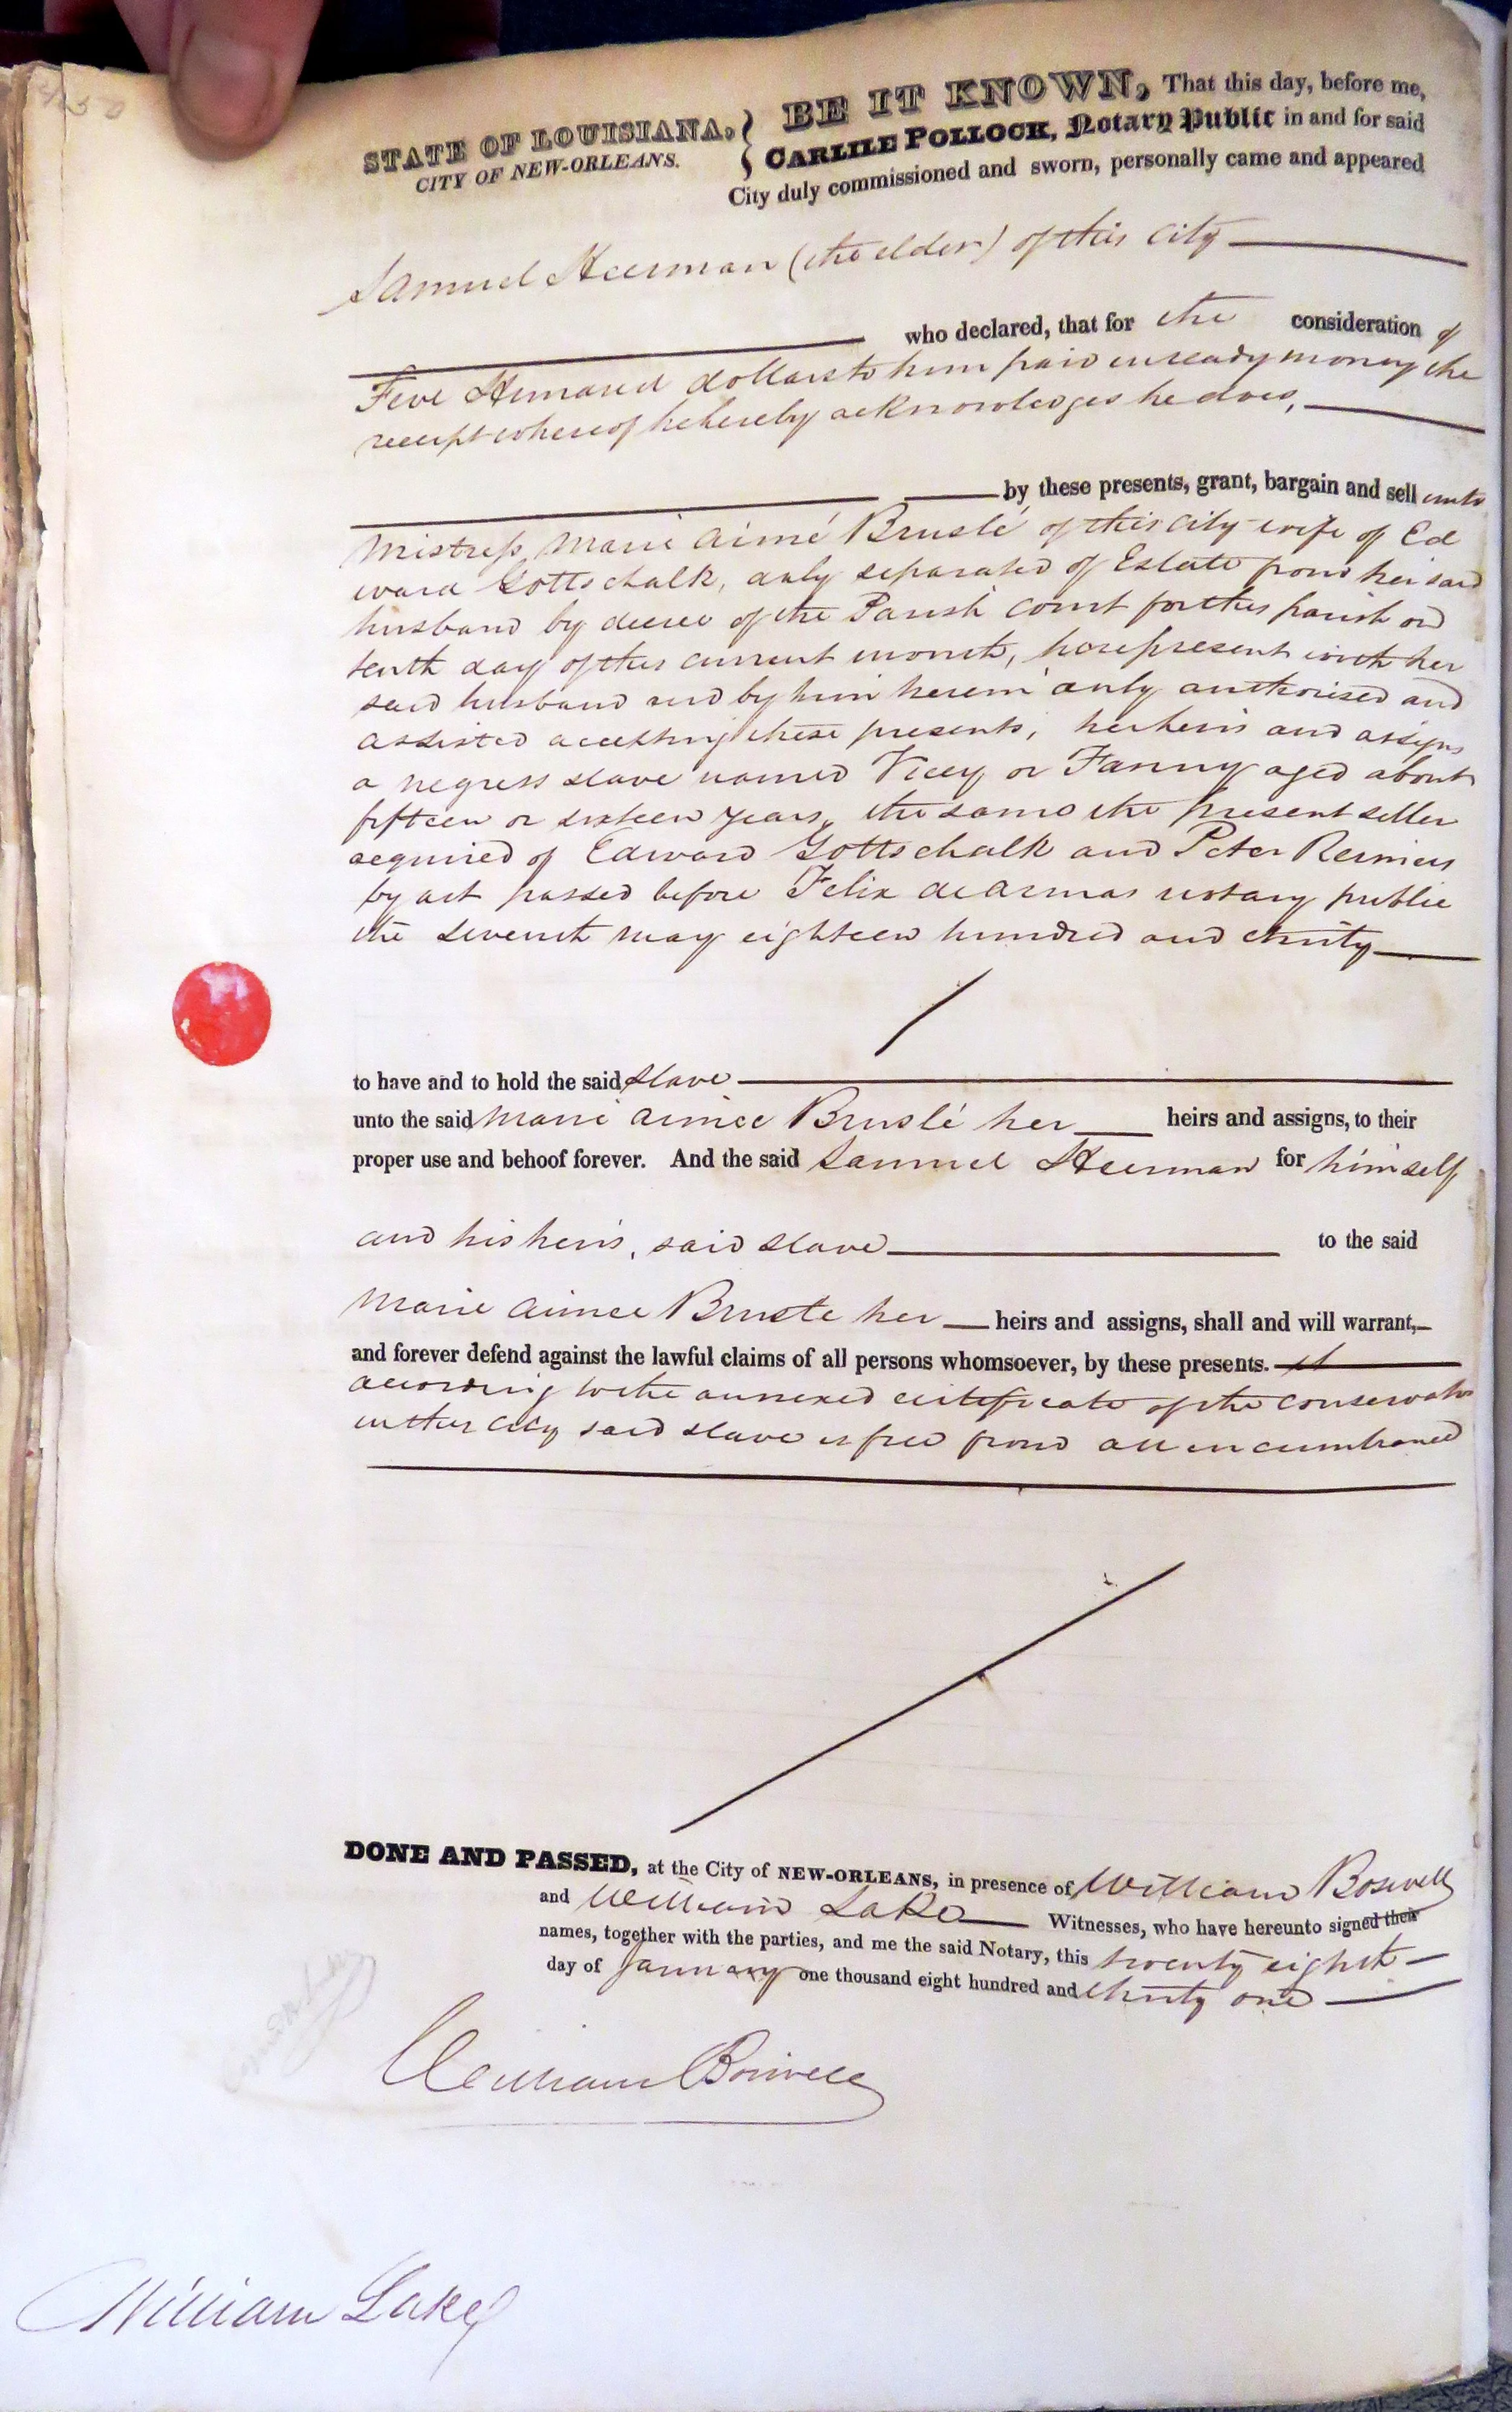 STATE OF LOUISIANA,
CITY OF NEW-ORLEANS.
BE IT KNOWN, That this day, before me,
CARLILE POLLOCK, Notary Public in and for said
City duly commissioned and sworn, personally came and appeared
Samuel Heerman (the elder) of this City
who declared, that for the consideration of
Five Hundred dollars to him paid in ready money the
receipt whereof he hereby acknowledges he does,
by these presents, grant, bargain and sell unto
Mistress Marie Aimé Bruslé of this city wife of Ed
ward Gottschalk, duly separated of Estate from her said
husband by decree of the Parish Court for this parish on
tenth day of this current month, here present with her
said husband and by him herein duly authorised and
assisted accepting these presents, her heirs and assigns
a negress slave named Vicey or Fanny aged about
fifteen or sixteen years, the same the present seller
acquired of Edward Gottschalk and Peter Reimers
by act passed before Felix de Armas notary public
the seventh may eighteen hundred and thirty
to have and to hold the said slave
unto the said Marie Aimée Bruslé her heirs and assigns, to their
proper use and behoof forever. And the said Samuel Heerman for himself
and his heirs, said slave to the said
Marie Aimee Brusle her heirs and assigns, shall and will warrant,
and forever defend against the lawful claims of all persons whomsoever, by these presents.
according to the annexed certificate of the conservator
in this city said slave is free from all incumbrance
DONE AND PASSED, at the City of NEW-ORLEANS, in presence of William Boswell
and William Lake Witnesses, who have hereunto signed their
names, together with the parties, and me the said Notary, this twenty eighth
day of January one thousand eight hundred and thirty one
William Boswell
William Lake